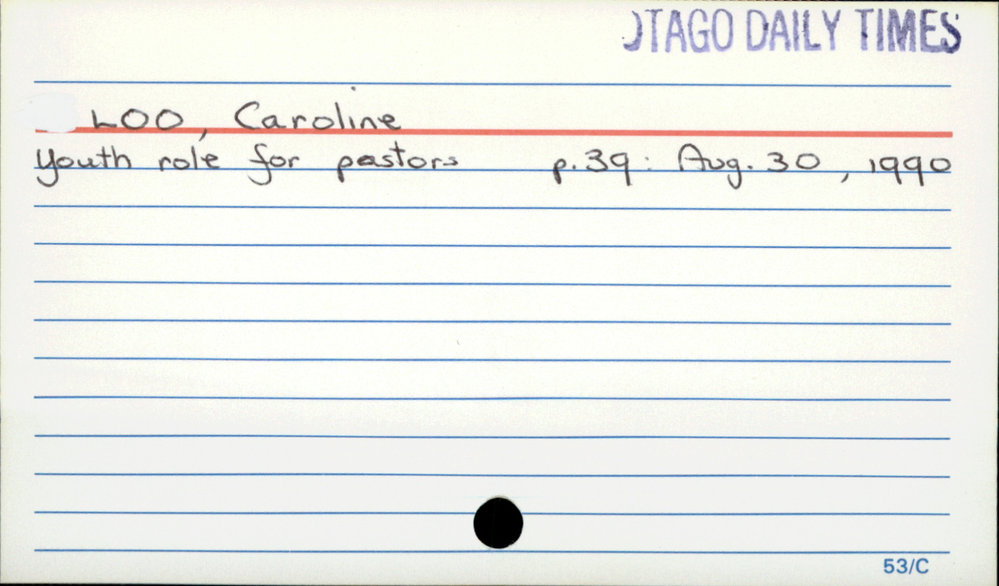 OTAGO DAILY TIMES
LOO, Caroline
Youth role for pastors p.39: Aug. 30, 1990
53/C